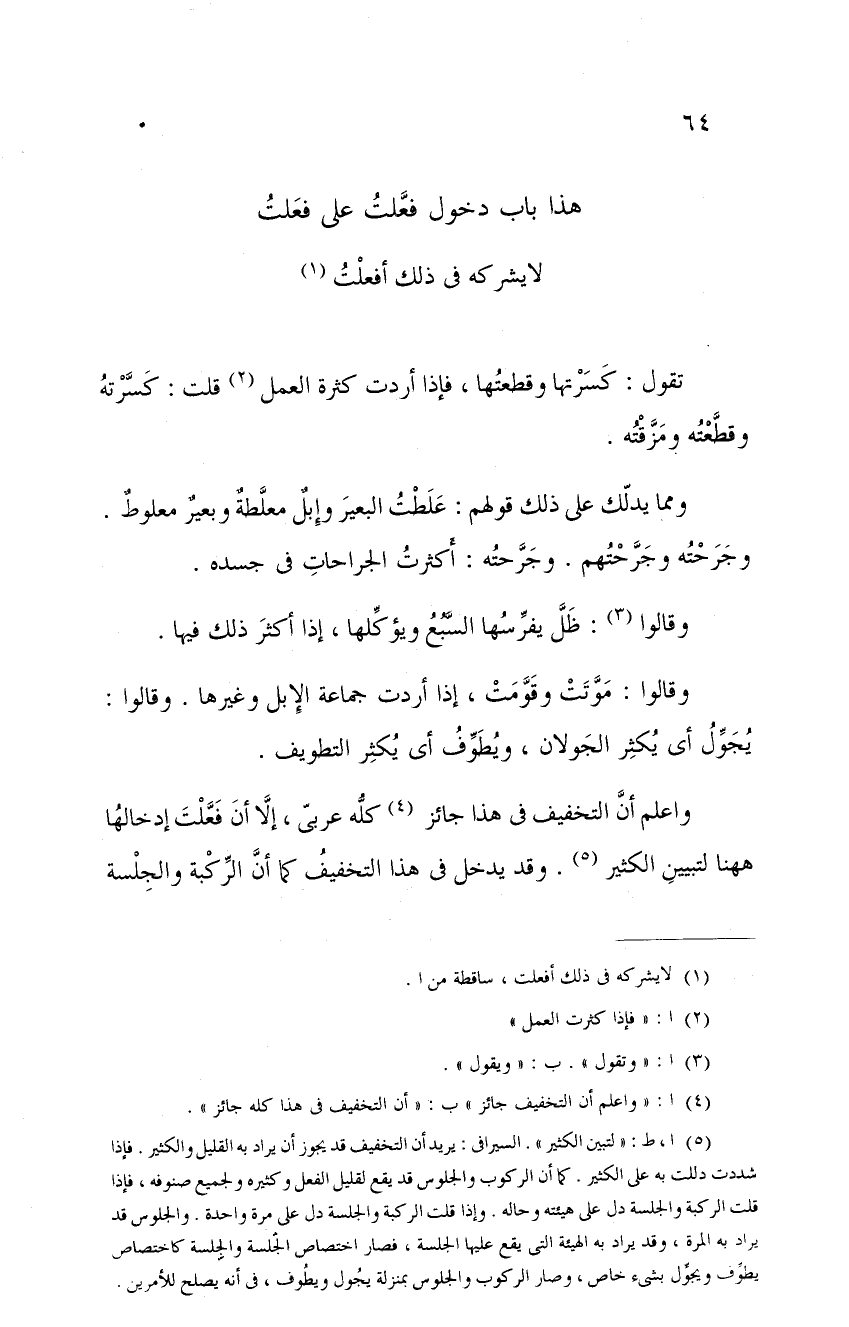 ٦٤
هذا باب دخول فعَّلتُ على فعَلتُ
لايشركه فى ذلك أفعلْتُ (١)
تقول : كَسَرْتها وقطعتُها ، فإذا أردت كثرة العمل (٢) قلت : كَسَّرْتهُ
وقطَّعْتُه ومَزَّقْتُه .
ومما يدلّك على ذلك قولهم : عَلَطْتُ البعيرَ وإبلٌ معلَّطةٌ وبعيرٌ معلوطٌ .
وجَرَحْتُه وجَرَّحْتُهم . وجَرَّحتُه : أكثرتُ الجراحاتِ فى جسده .
وقالوا (٣) : ظَلَّ يفرِّسُها السَّبُعُ ويؤكِّلها ، إذا أكثرَ ذلك فيها .
وقالوا : مَوَّتَتْ وقَوَّمَتْ ، إذا أردت جماعة الإِبل وغيرها . وقالوا :
يُجَوِّلُ أى يُكثِر الجَولان ، ويُطَوِّفُ أى يُكثِر التطويف .
واعلم أنَّ التخفيف فى هذا جائز (٤) كلُّه عربىّ ، إلَّا أنَ فَعَّلْتَ إدخالهُا
ههنا لتبيينِ الكثير (٥) . وقد يدخل فى هذا التخفيفُ كما أنَّ الرِّكْبة والجِلْسة
(١) لايشركه فى ذلك أفعلت ، ساقطة من ا .
(٢) ا : « فإذا كثرت العمل »
(٣) ا : « وتقول » . ب : « ويقول » .
(٤) ا : « واعلم أن التخفيف جائز » ب : « أن التخفيف فى هذا كله جائز » .
(٥) ا ، ط : « لتبين الكثير » . السيرافى : يريد أن التخفيف قد يجوز أن يراد به القليل والكثير . فإذا
شددت دللت به على الكثير . كما أن الركوب والجلوس قد يقع لقليل الفعل وكثيره ولجميع صنوفه ، فإذا
قلت الركبة والجلسة دل على هيئته وحاله . وإذا قلت الركبة والجلسة دل على مرة واحدة . والجلوس قد
يراد به المرة ، وقد يراد به الهيئة التى يقع عليها الجلسة ، فصار اختصاص الجَلسة والجِلسة كاختصاص
يطوِّف ويجوِّل بشىء خاص ، وصار الركوب والجلوس بمنزلة يجُول ويطُوف ، فى أنه يصلح للأمرين .